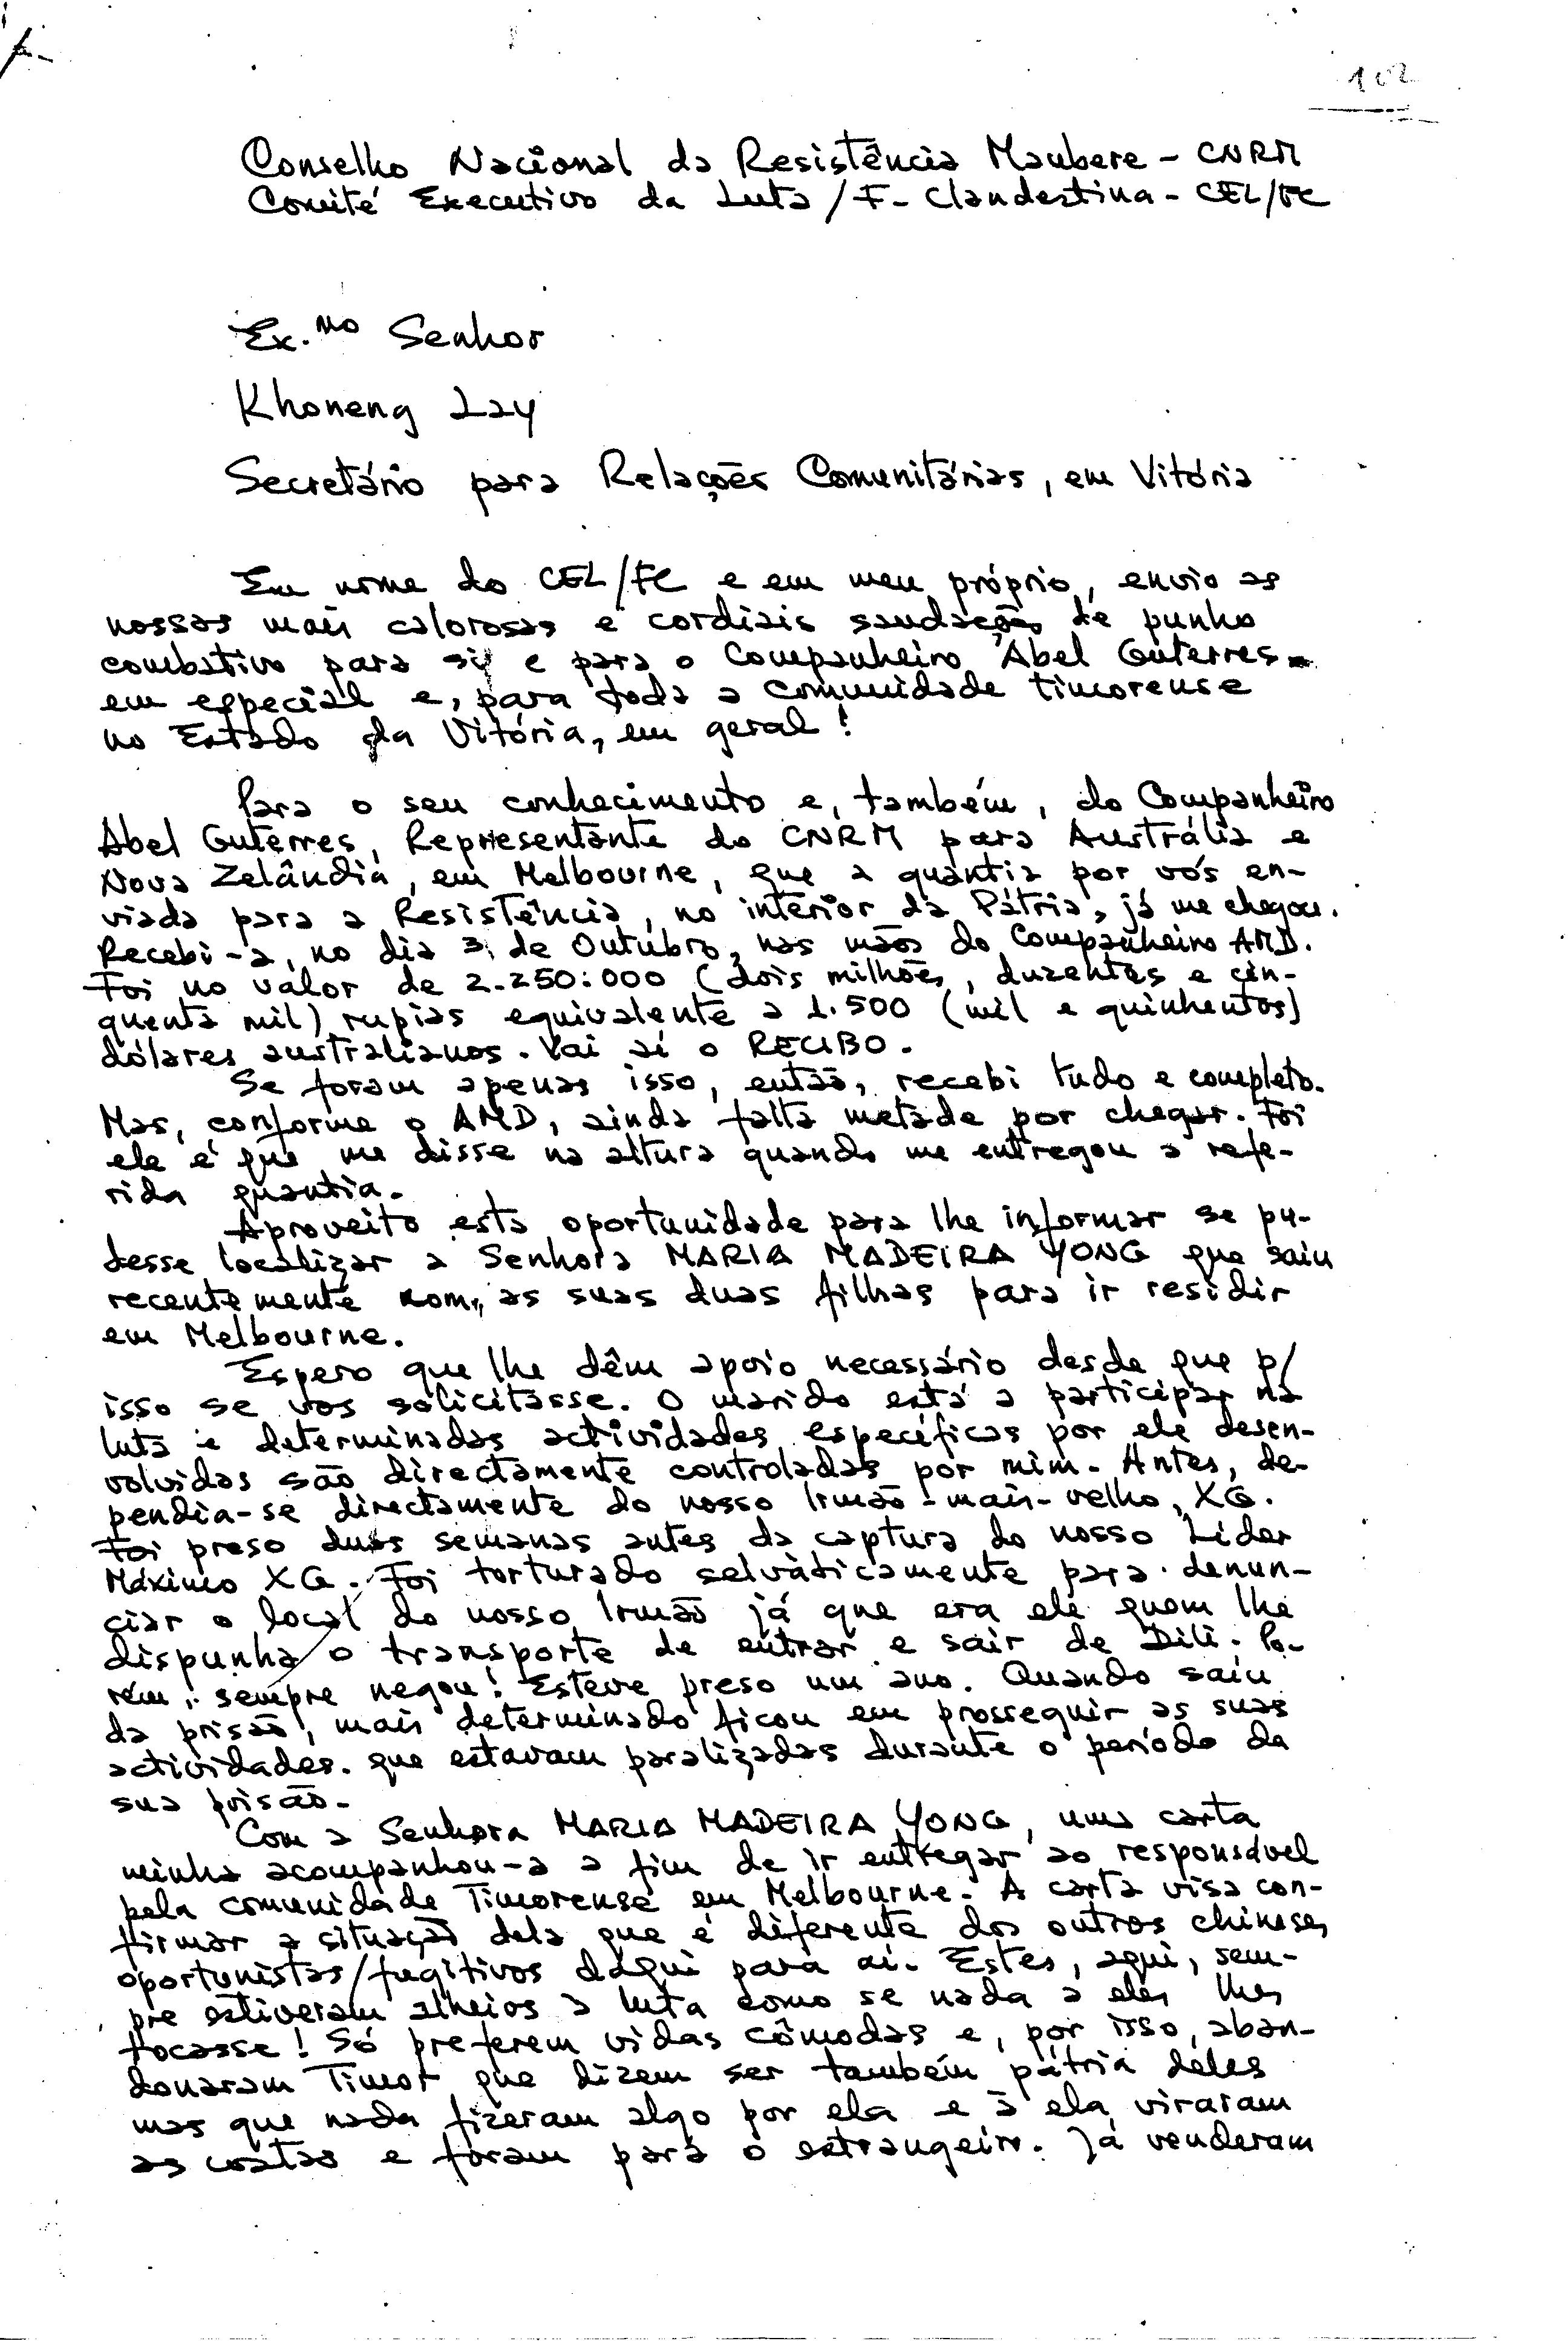 102
Conselho Nacional da Resistência Maubere - CNRM
Comité Executivo da Luta / F- Clandestina - CEL/FC
Ex.mo Senhor
Khoneng Lay
Secretário para Relações Comunitárias, em Vitória
Em nome do CEL/FC e em meu próprio, envio as
nossas mais calorosas e cordiais saudações de punho
combativo para si e para o Companheiro Abel Guterres
em especial e, para toda a comunidade timorense
no Estado da Vitória, em geral!
Para o seu conhecimento e, também, do Companheiro
Abel Guterres, Representante do CNRM para Austrália e
Nova Zelândia, em Melbourne, que a quantia por vós en-
viada para a Resistência, no interior da Pátria, já me chegou.
Recebi-a, no dia 3, de Outubro, nas mãos do Companheiro AMD.
Foi no valor de 2.250:000 (dois milhões, duzentos e cin-
quenta mil) rupias equivalente a 1.500 (mil e quinhentos)
dólares australianos. Vai aí o RECIBO.
Se foram apenas isso, então, recebi tudo e completo.
Mas, conforme o AMD, ainda falta metade por chegar. Foi
ele é que me disse na altura quando me entregou a refe-
rida quantia.
Aproveito esta oportunidade para lhe informar se pu-
desse localizar a Senhora MARIA MADEIRA YONG que saiu
recentemente com, as suas duas filhas para ir residir
em Melbourne.
Espero que lhe dêm apoio necessário desde que p/
isso se vos solicitasse. O marido está a participar na
luta e determinadas actividades específicas por ele desen-
volvidas são directamente controladas por mim. Antes, de-
pendia-se directamente do nosso Irmão-mais-velho, XG.
Foi preso duas semanas antes da captura do nosso Líder
Máximo XG. Foi torturado selvàticamente para denun-
ciar o local do nosso Irmão já que era ele quem lhe
dispunha o transporte de entrar e sair de Dili. Po-
rém, sempre negou! Esteve preso um ano. Quando saiu
da prisão, mais determinado ficou em prosseguir as suas
actividades. que estavam paralizadas durante o período da
sua prisão.
Com a Senhora MARIA MADEIRA YONG, uma carta
minha acompanhou-a a fim de ir entregar ao responsável
pela comunidade Timorense em Melbourne. A carta visa con-
firmar a situação dela que é diferente dos outros chineses,
oportunistas/fugitivos daqui para aí. Estes, aqui, sem-
pre estiveram alheios à luta como se nada a eles lhes
tocasse! Só preferem vidas cômodas e, por isso, aban-
donaram Timor que dizem ser também pátria deles
mas que nada fizeram algo por ela e à ela viraram
as costas e foram para o estrangeiro. Já venderam